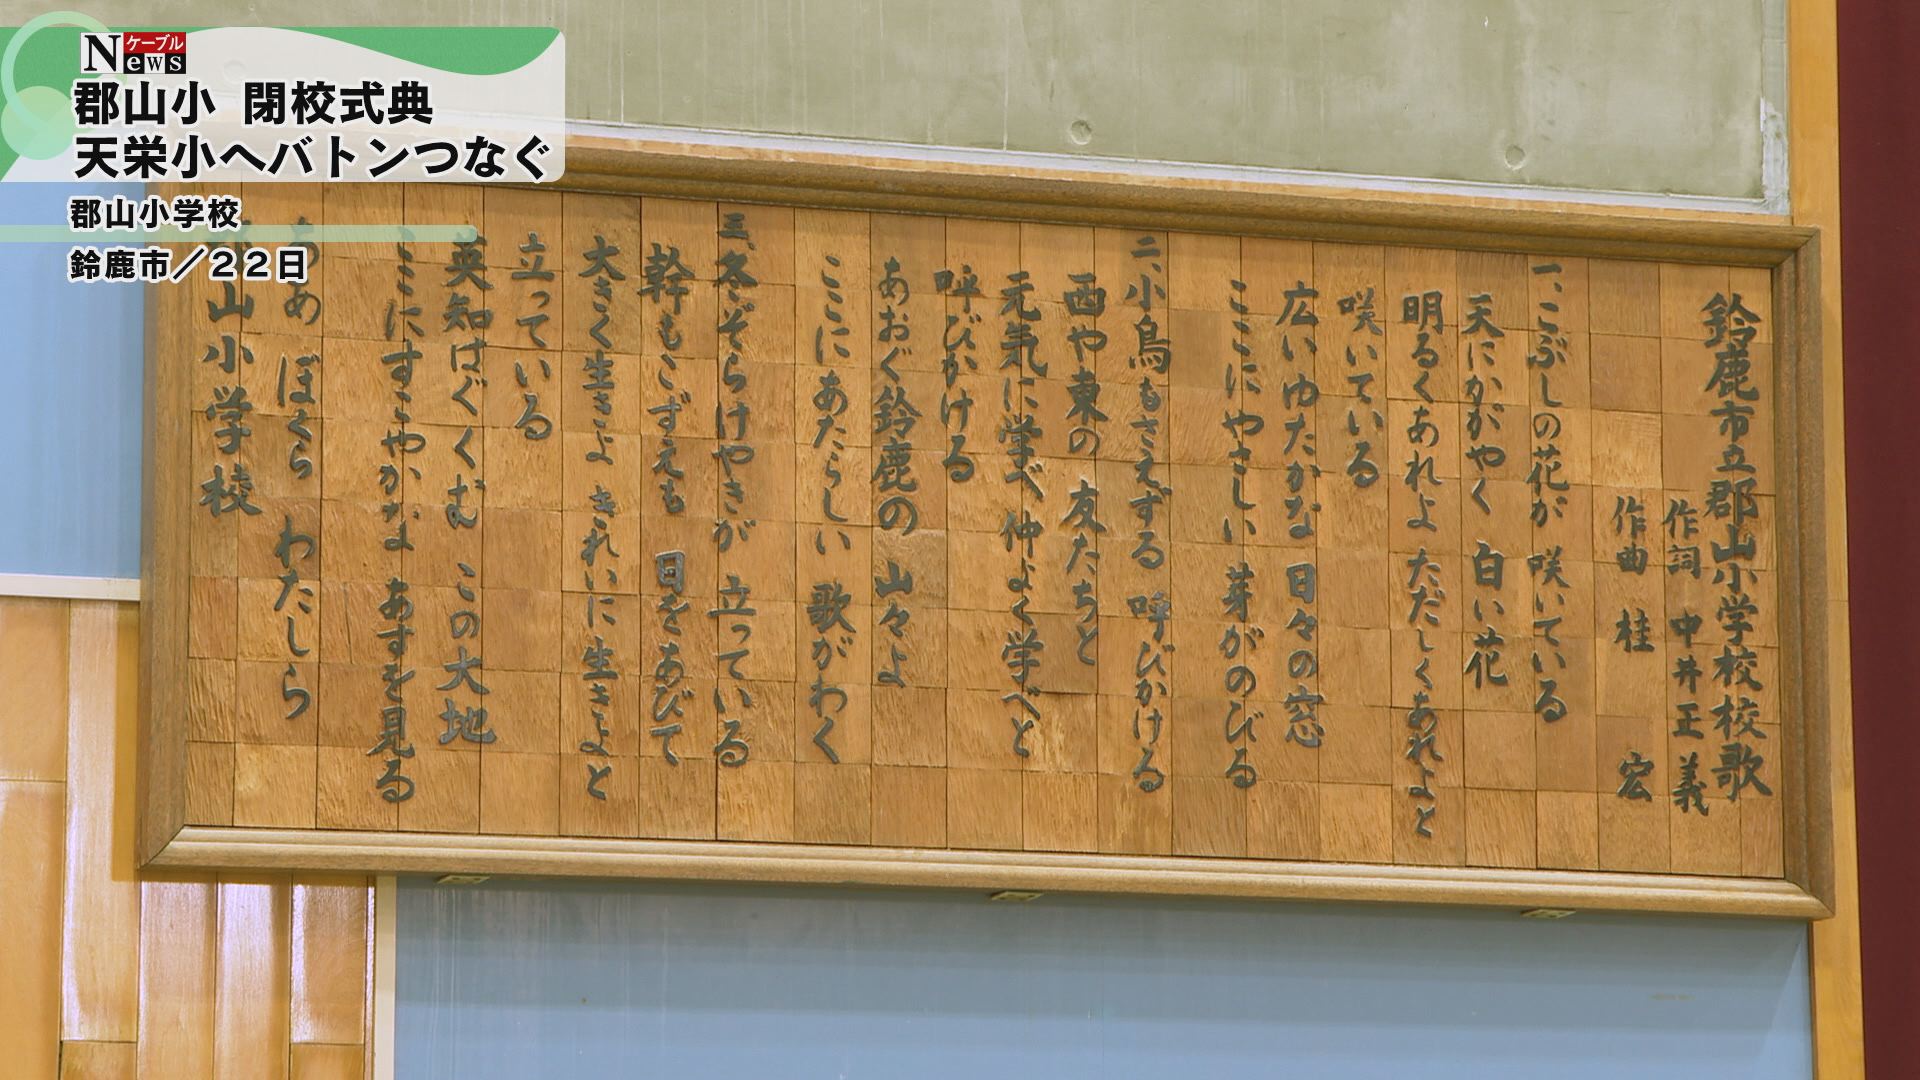 ケーブル
News
郡山小 閉校式典
天栄小へバトンつなぐ
郡山小学校
鈴鹿市／２２日
鈴鹿市立郡山小学校校歌
作詞 中井正義
作曲 桂 宏
一、こぶしの花が 咲いている
天にかがやく 白い花
明るくあれよ ただしくあれよと
咲いている
広いゆたかな 日々の窓
ここにやさしい 芽がのびる
二、小鳥もさえずる 呼びかける
西や東の 友たちと
元気に学べ 仲よく学べと
呼びかける
あおぐ鈴鹿の 山々よ
ここにあたらしい 歌がわく
三、冬ぞらけやきが 立っている
幹もこずえも 日をあびて
大きく生きよ きれいに生きよと
立っている
英知はぐくむ この大地
ここにすこやかな あすを見る
ああ ぼくら わたしら
郡山小学校